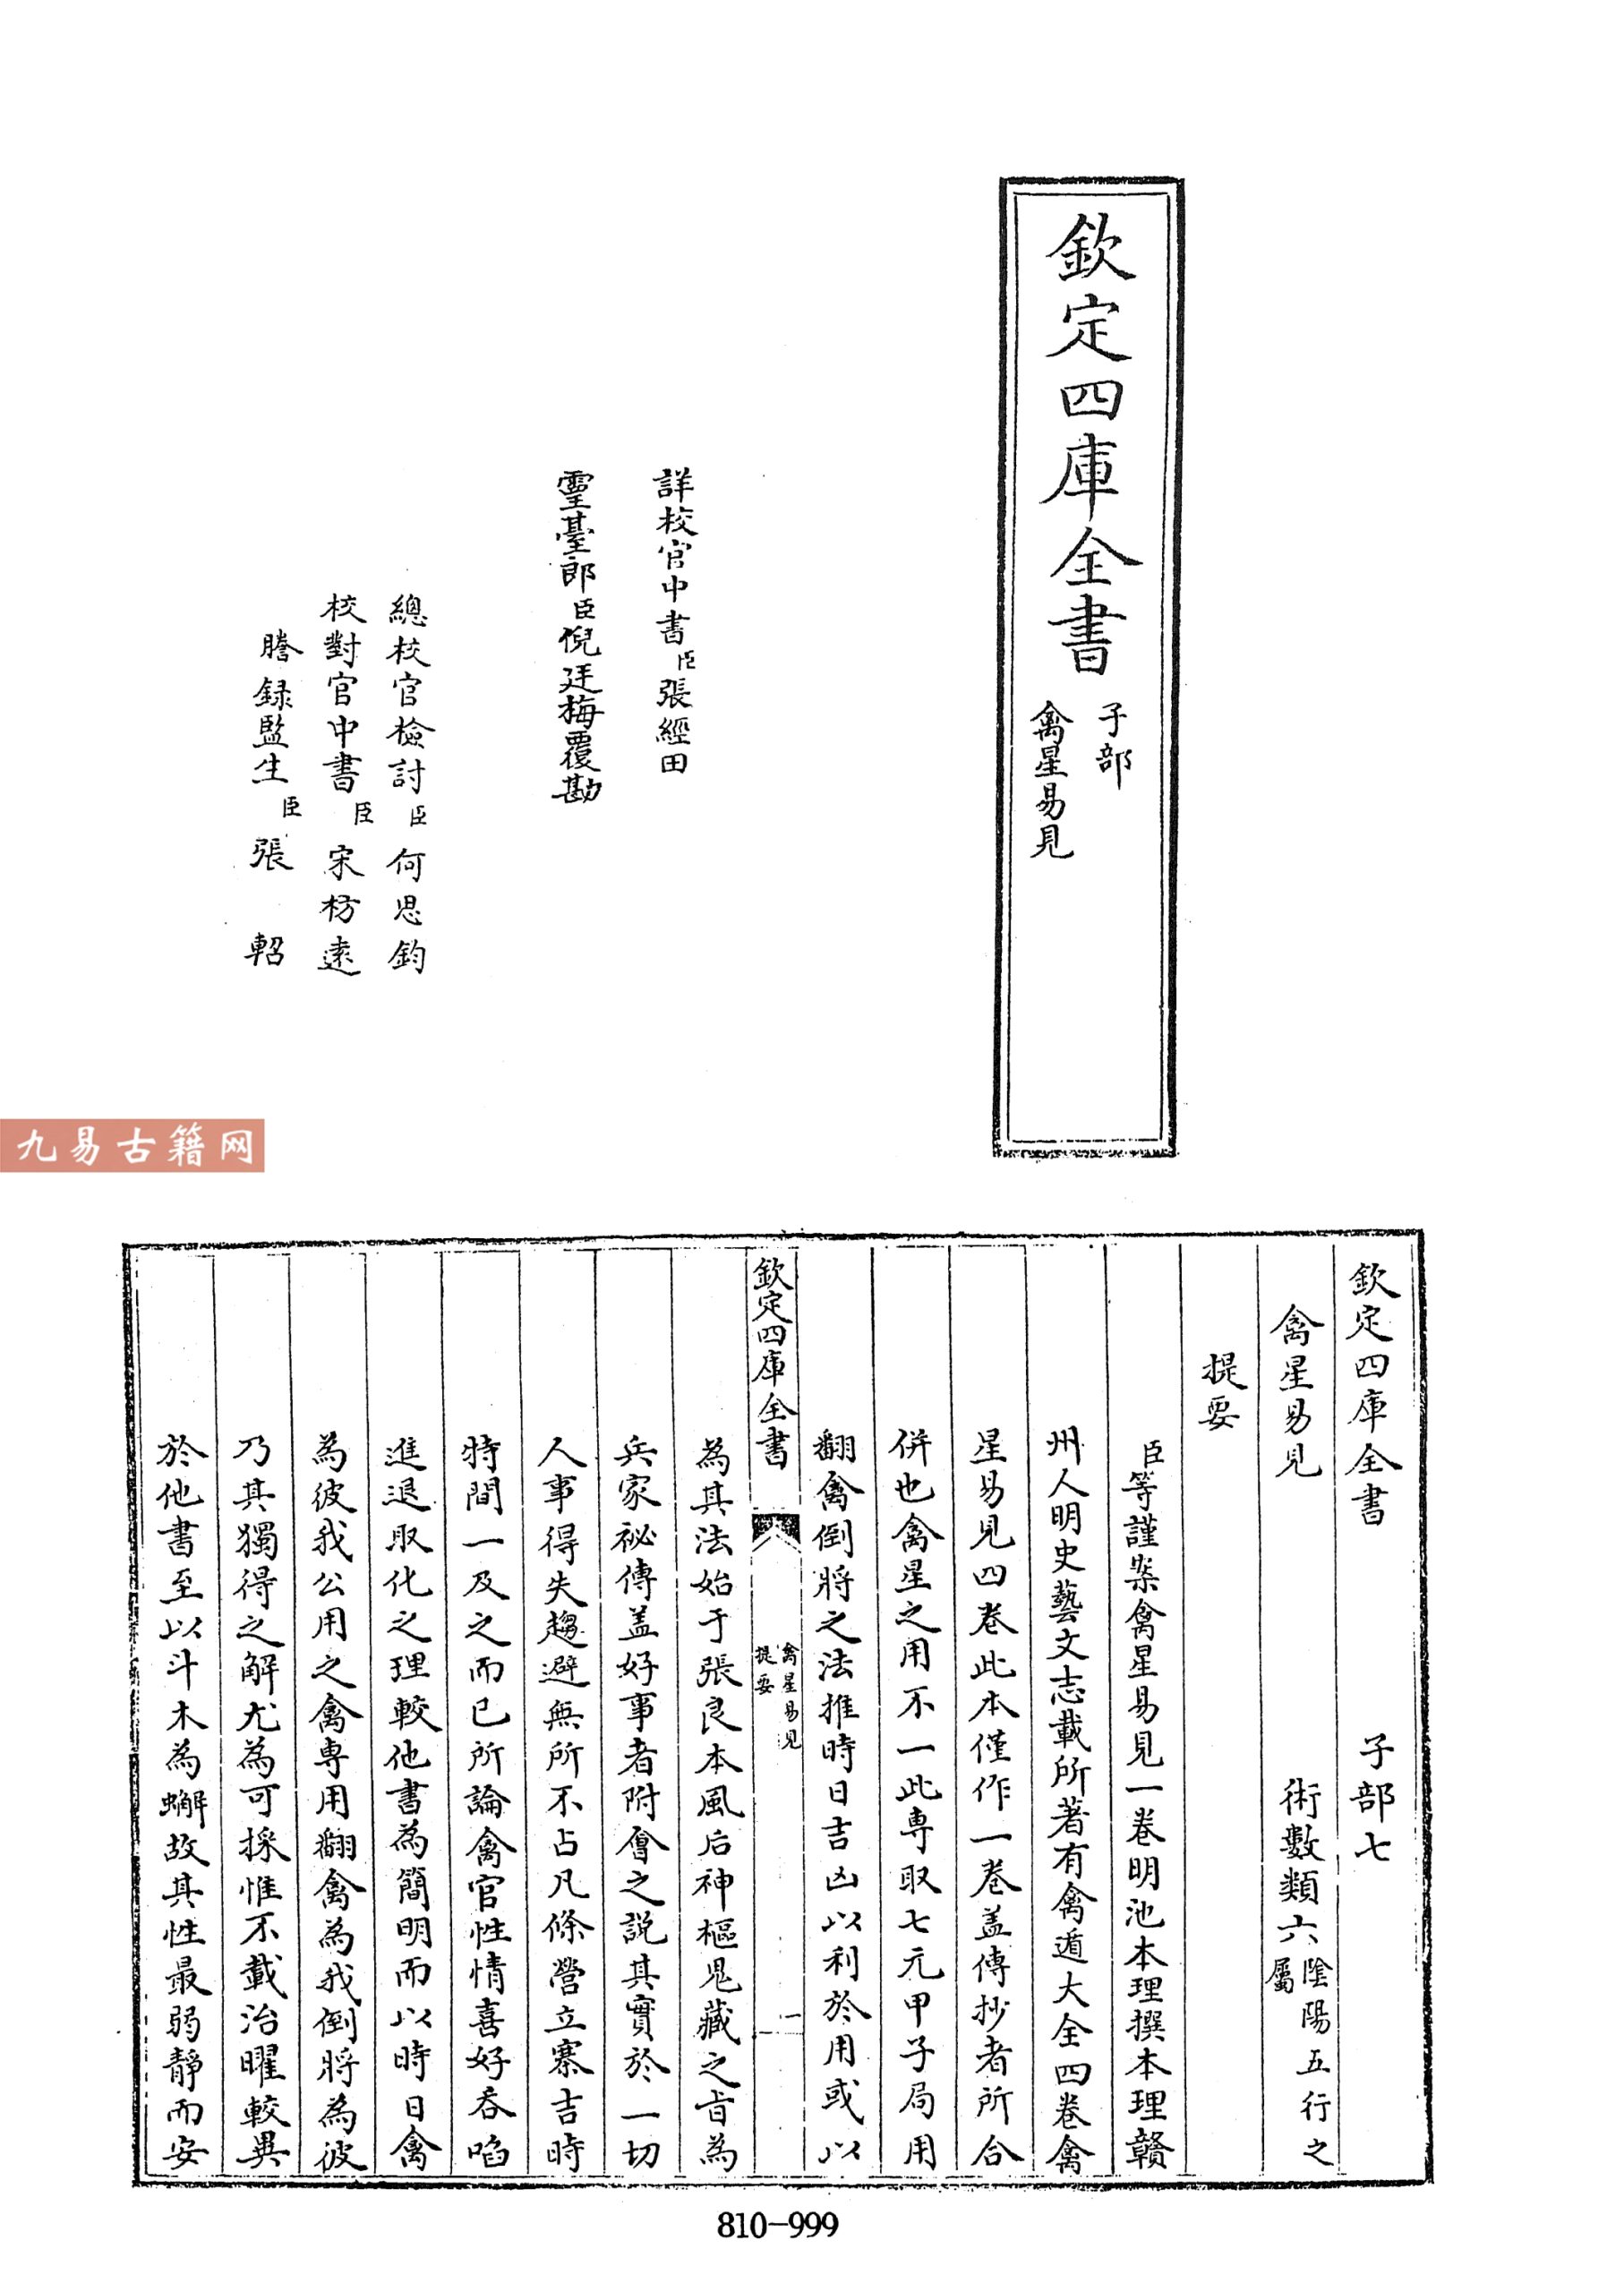 欽定四庫全書
子部
禽星易見
詳校官中書臣張經田
靈臺郎臣倪廷梅覆勘
總校官檢討臣何思鈞
校對官中書臣宋枋遠
謄録監生臣張軺
九易古籍网
欽定四庫全書 子部七
禽星易見 術數類六陰陽五行之屬
提要
臣等謹案禽星易見一卷明池本理撰本理贛
州人明史藝文志載所著有禽遁大全四卷禽
星易見四卷此本僅作一卷盖傳抄者所合
併也禽星之用不一此専取七元甲子局用
翻禽倒將之法推時日吉凶以利於用或以
欽定四庫全書
禽星易見
提要
一
為其法始于張良本風后神樞鬼藏之旨為
兵家祕傳盖好事者附會之說其實於一切
人事得失趨避無所不占凡條營立寨吉時
特間一及之而已所論禽宿性情喜好吞啗
進退取化之理較他書為簡明而以時日禽
為彼我公用之禽専用翻禽為我倒將為彼
乃其獨得之解尤為可採惟不載治曜較異
於他書至以斗木為蠏故其性最弱靜而安
810-999